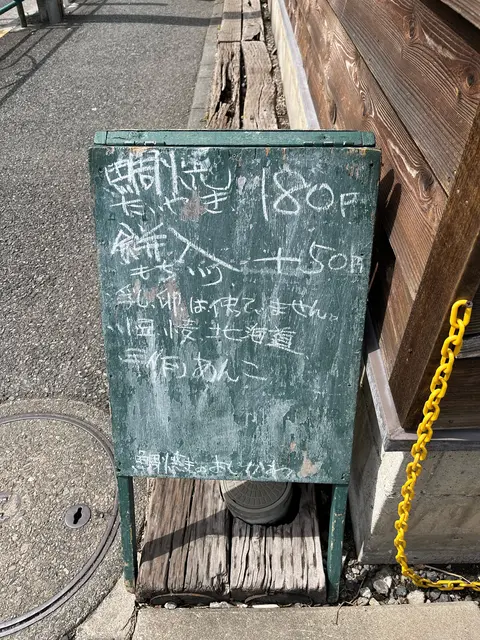 鯛焼 180円
たいやき
餅入 +50円
もちいり
乳卵は使ていません。
小豆 小麦 北海道
三作 あんこ
鯛焼きのよしかわ